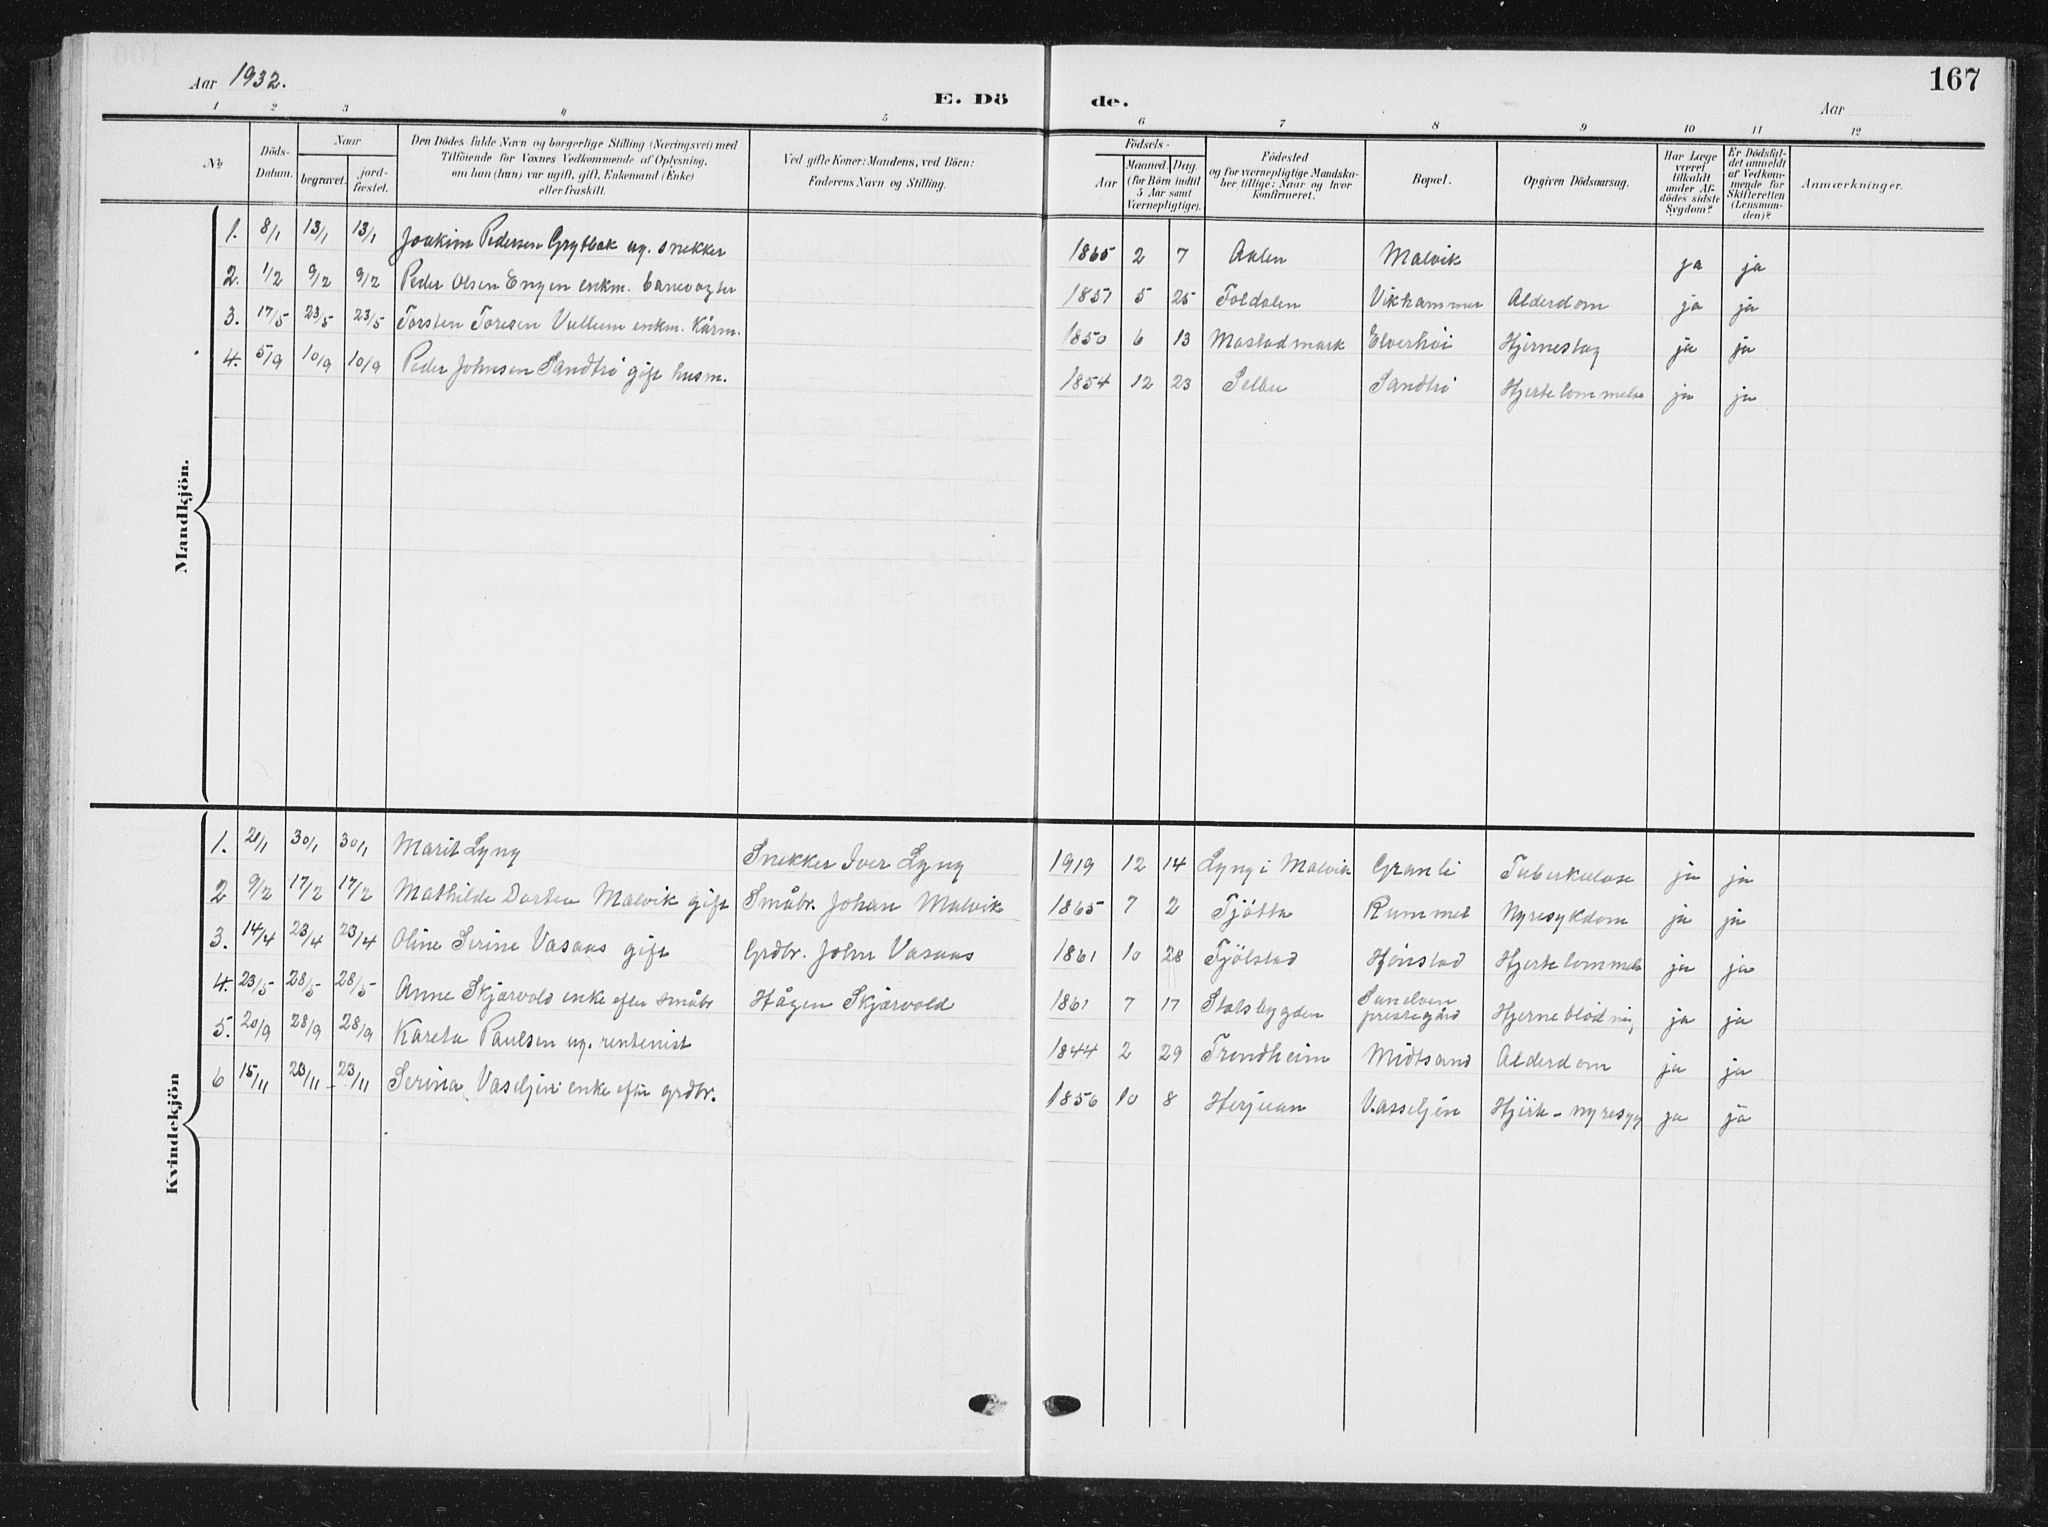 167
Aar 1932.
E. Dö de.
Aar
1 2 3 4 5 6 7 8 9 10 11 12
No
Döds-Datum.
Naar
begravet.
jord-fæstet.
Den Dödes fulde Navn og borgerlige Stilling (Næringsvei) med
Tilföiende for Voxnes Vedkommende af Oplysning,
om han (hun) var ugift, gift, Enkemand (Enke)
eller fraskilt.
Ved gifte Koner: Mandens, ved Börn:
Faderens Navn og Stilling.
Födsels-
Aar
Maaned Dag.
(for Börn indtil
5 Aar samt
Værnepligtige).
Födested
og for værnepligtige Mandska-
ber tillige: Naar og hvor
konfirmeret.
Bopæl.
Opgiven Dödsaarsag.
Har Læge
været
tilkaldt
under Af-
dödes sidste
Sygdom?
Er Dödsfal-
det anmeldt
af Vedkom-
mende for
Skifteretten
(Lensman-
den)?
Anmærkninger.
Mandkjön.
1. 8/1 13/1 13/1 Joakim Pedersen Grytbak ug. snekker 1865 2 7 Aalen Malvik ja ja
2. 1/2 9/2 9/2 Peder Olsen Engen enkm. banevogter 1851 5 25 Foldalen Vikhammer Alderdom ja ja
3. 17/5 23/5 23/5 Torsten Toresen Vullum enkm. Kårm. 1850 6 13 Mostadmark Elverhøi Hjerneslag ja ja
4. 5/9 10/9 10/9 Peder Johnsen Sandtrö gift husm. 1854 12 23 Selbu Sandtrö Hjertelammelse ja ja
Kvindekjön
1. 21/1 30/1 30/1 Marit Lyng Snekker Iver Lyng 1919 12 14 Lyng i Malvik Granli Tuberkulose ja ja
2 9/2 17/2 17/2 Mathilde Dortea Malvik gift Småbr. Johan Malvik 1865 7 2 Tjötta Rummel Nyresykdom ja ja
3. 14/4 23/4 23/4 Oline Serine Vasaas gift Grdbr. John Vasaas 1861 10 28 Hønstad Hjertelammelse ja ja
4. 23/5 28/5 28/5 Anne Skjærvold enke efter småbr Hågen Skjærvold 1861 7 17 Statsbygden prestegård Hjerneblödning ja ja
5. 20/9 28/9 28/9 Kareta Paulsen ug. rentenist 1844 2 29 Trondheim Midtsand Alderdom ja ja
6 15/11 23/11 23/11 Serina Vaseljen enke efter grdbr. 1856 10 8 Vasseljen Hjerte-nyresyg ja ja